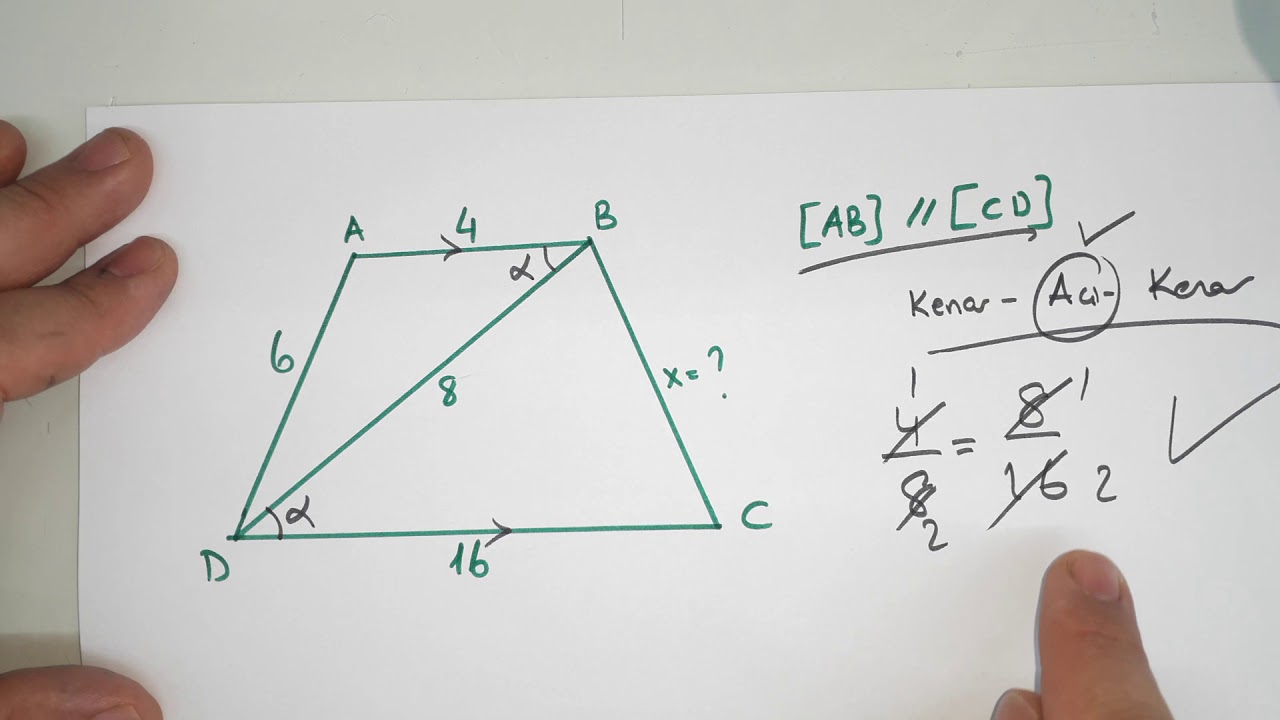 A 4 B
α
6
8
x=?
α
D 16 C
[AB] // [CD]
Kenar - Açı - Kenar
1 1
4/8 = 8/16
2 2